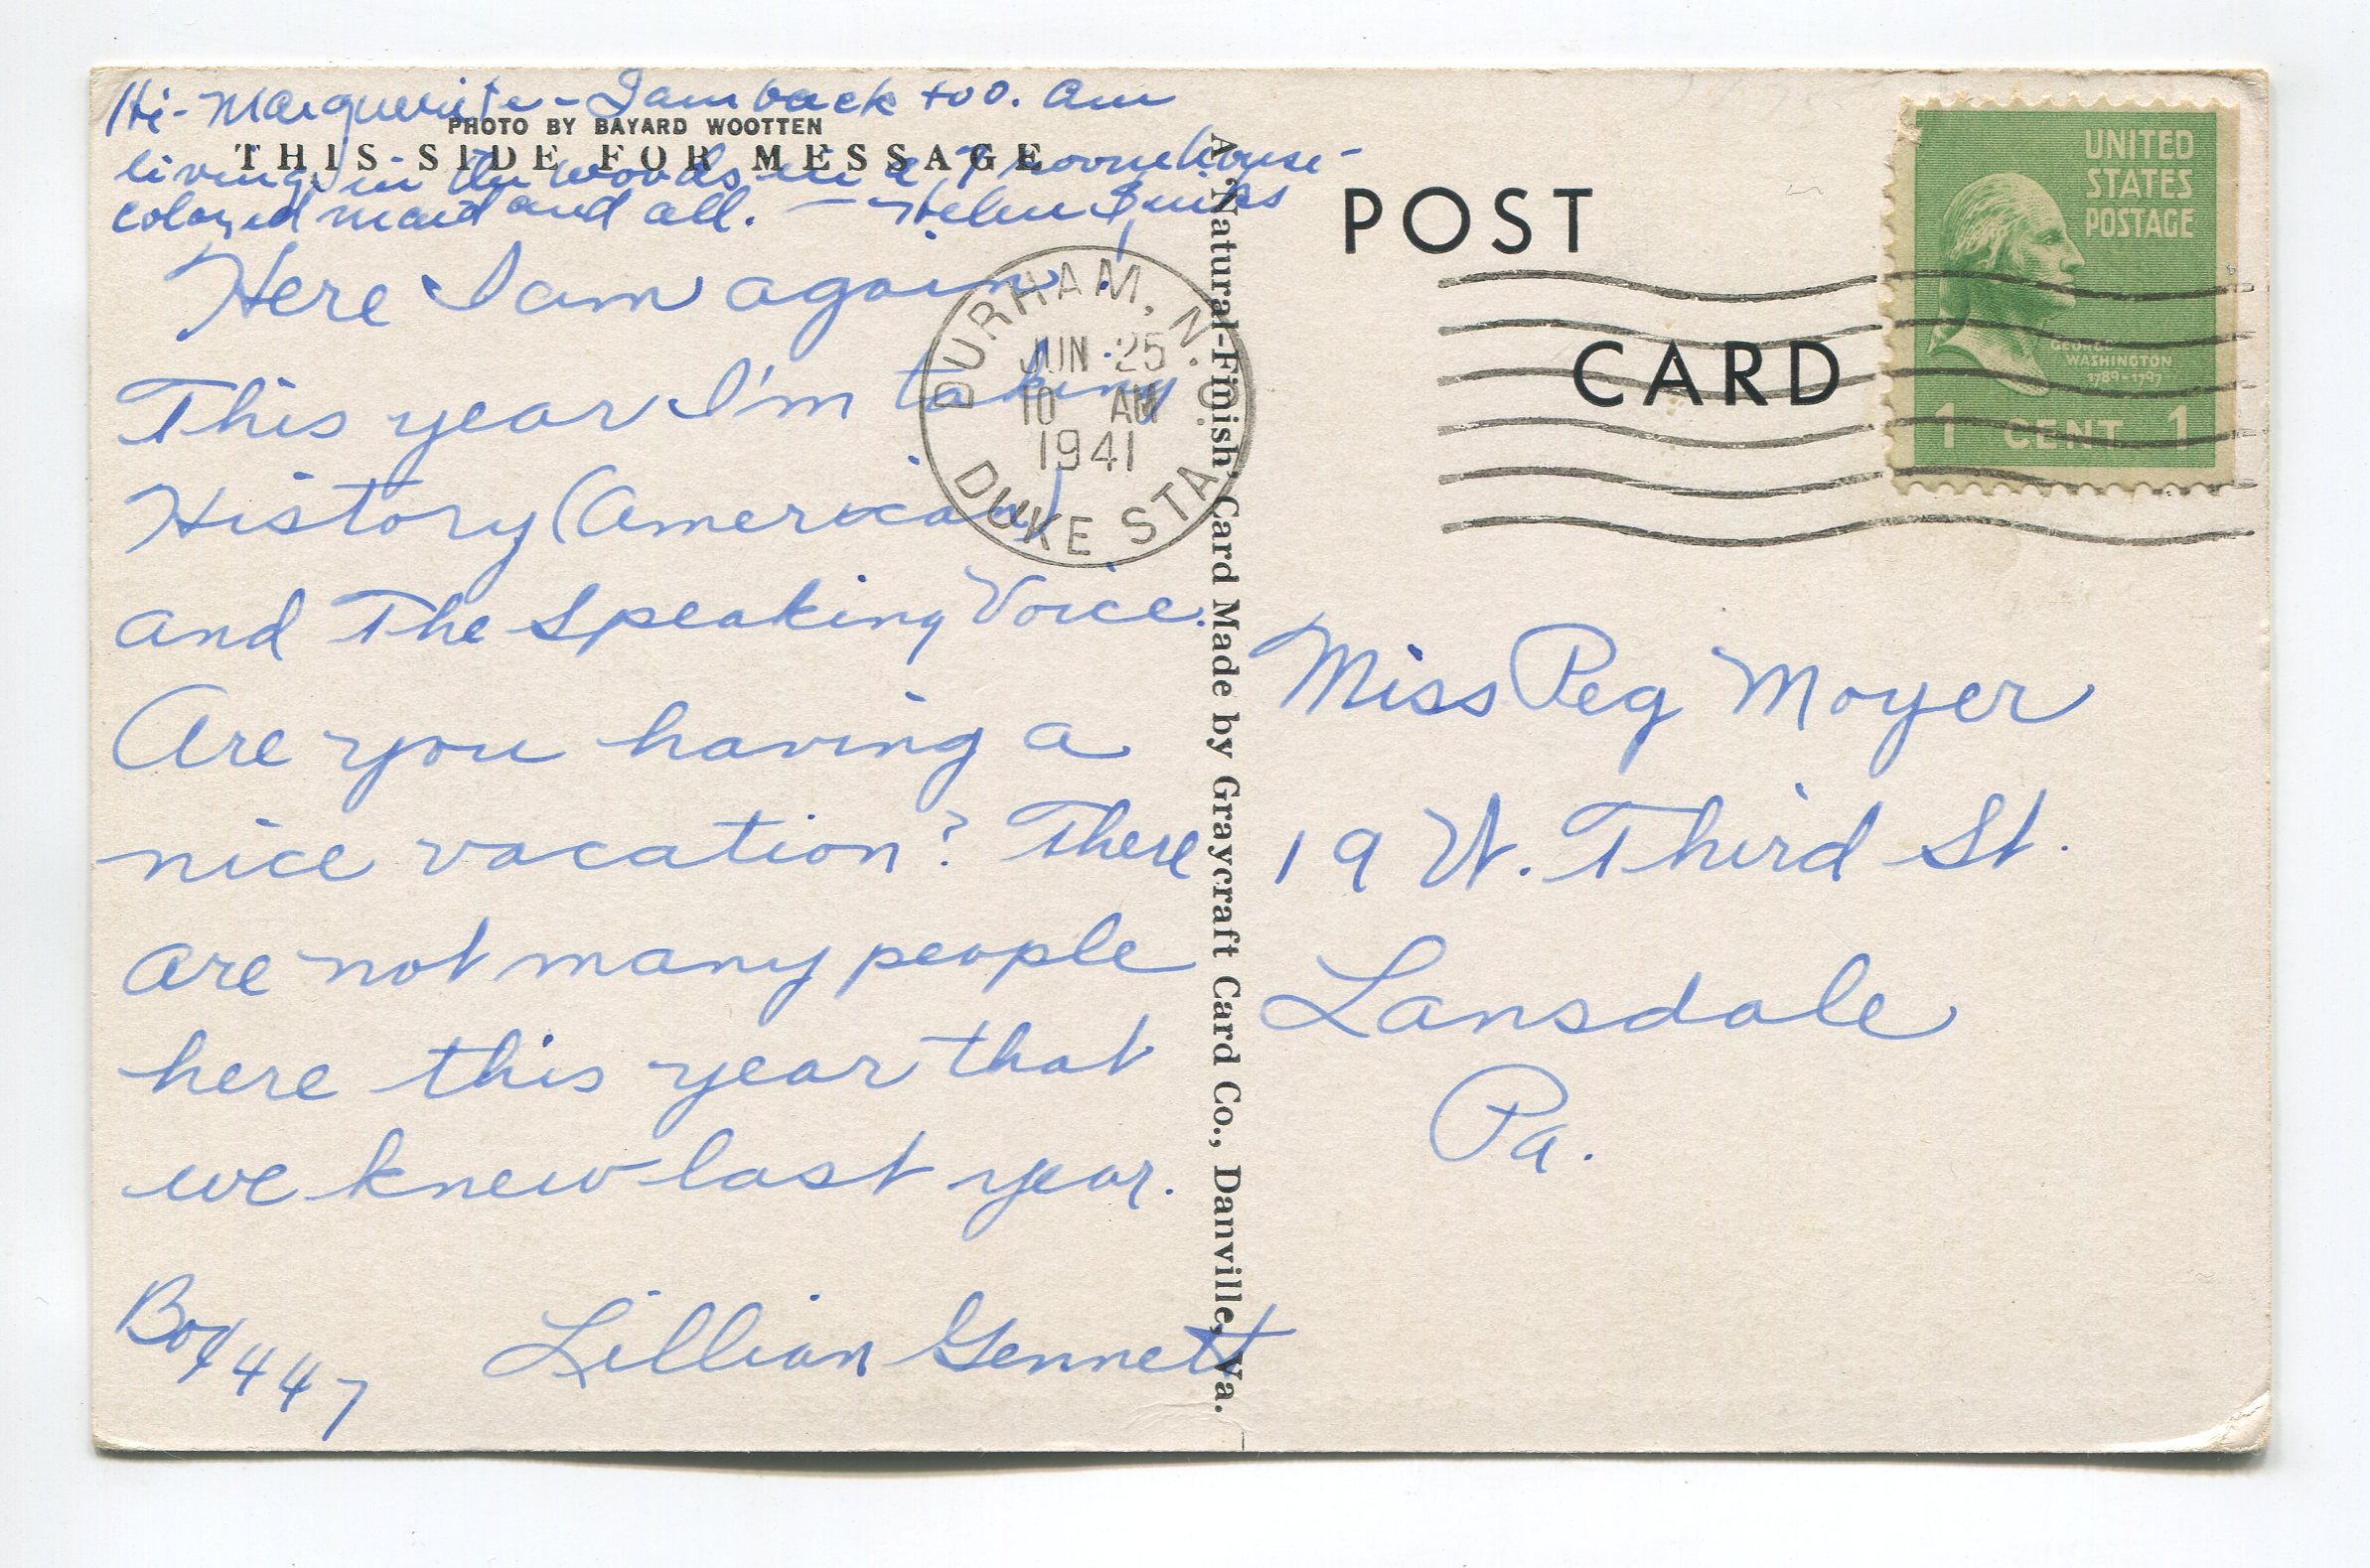 Hi - Marguerite - I am back too. Am
PHOTO BY BAYARD WOOTTEN
THIS SIDE FOR MESSAGE
living in the woods in a 7 room house -
colored maid and all. — Helen
Here I am again!
This year I'm taking
History (American)
and The Speaking Voice.
Are you having a
nice vacation? There
are not many people
here this year that
we knew last year.
Box 447
Lillian Gennett
DURHAM, N.C.
JUN 25
10 AM
1941
DUKE STA.
A "Natural-Finish" Card Made by Graycraft Card Co., Danville, Va.
POST
CARD
UNITED
STATES
POSTAGE
GEORGE
WASHINGTON
1789-1797
1 CENT 1
Miss Peg Moyer
19 W. Third St.
Lansdale
Pa.